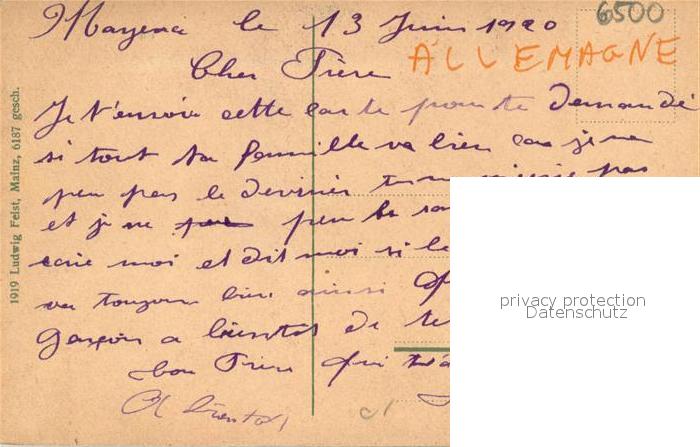 6500
Mayence le 13 Juin 1920
ALLEMAGNE
Cher Frère
Je t'envoie cette carte pour te demandé
si tout ta famille va bien car je ne
peu pas le deviner tu pas
et je ne peu le
moi et dit moi si le
va toujours bien ainsi
garçon a bientot de te
ton Frère qui
A bientot
1919 Ludwig Feist, Mainz, 6187 gesch.
privacy protection
Datenschutz